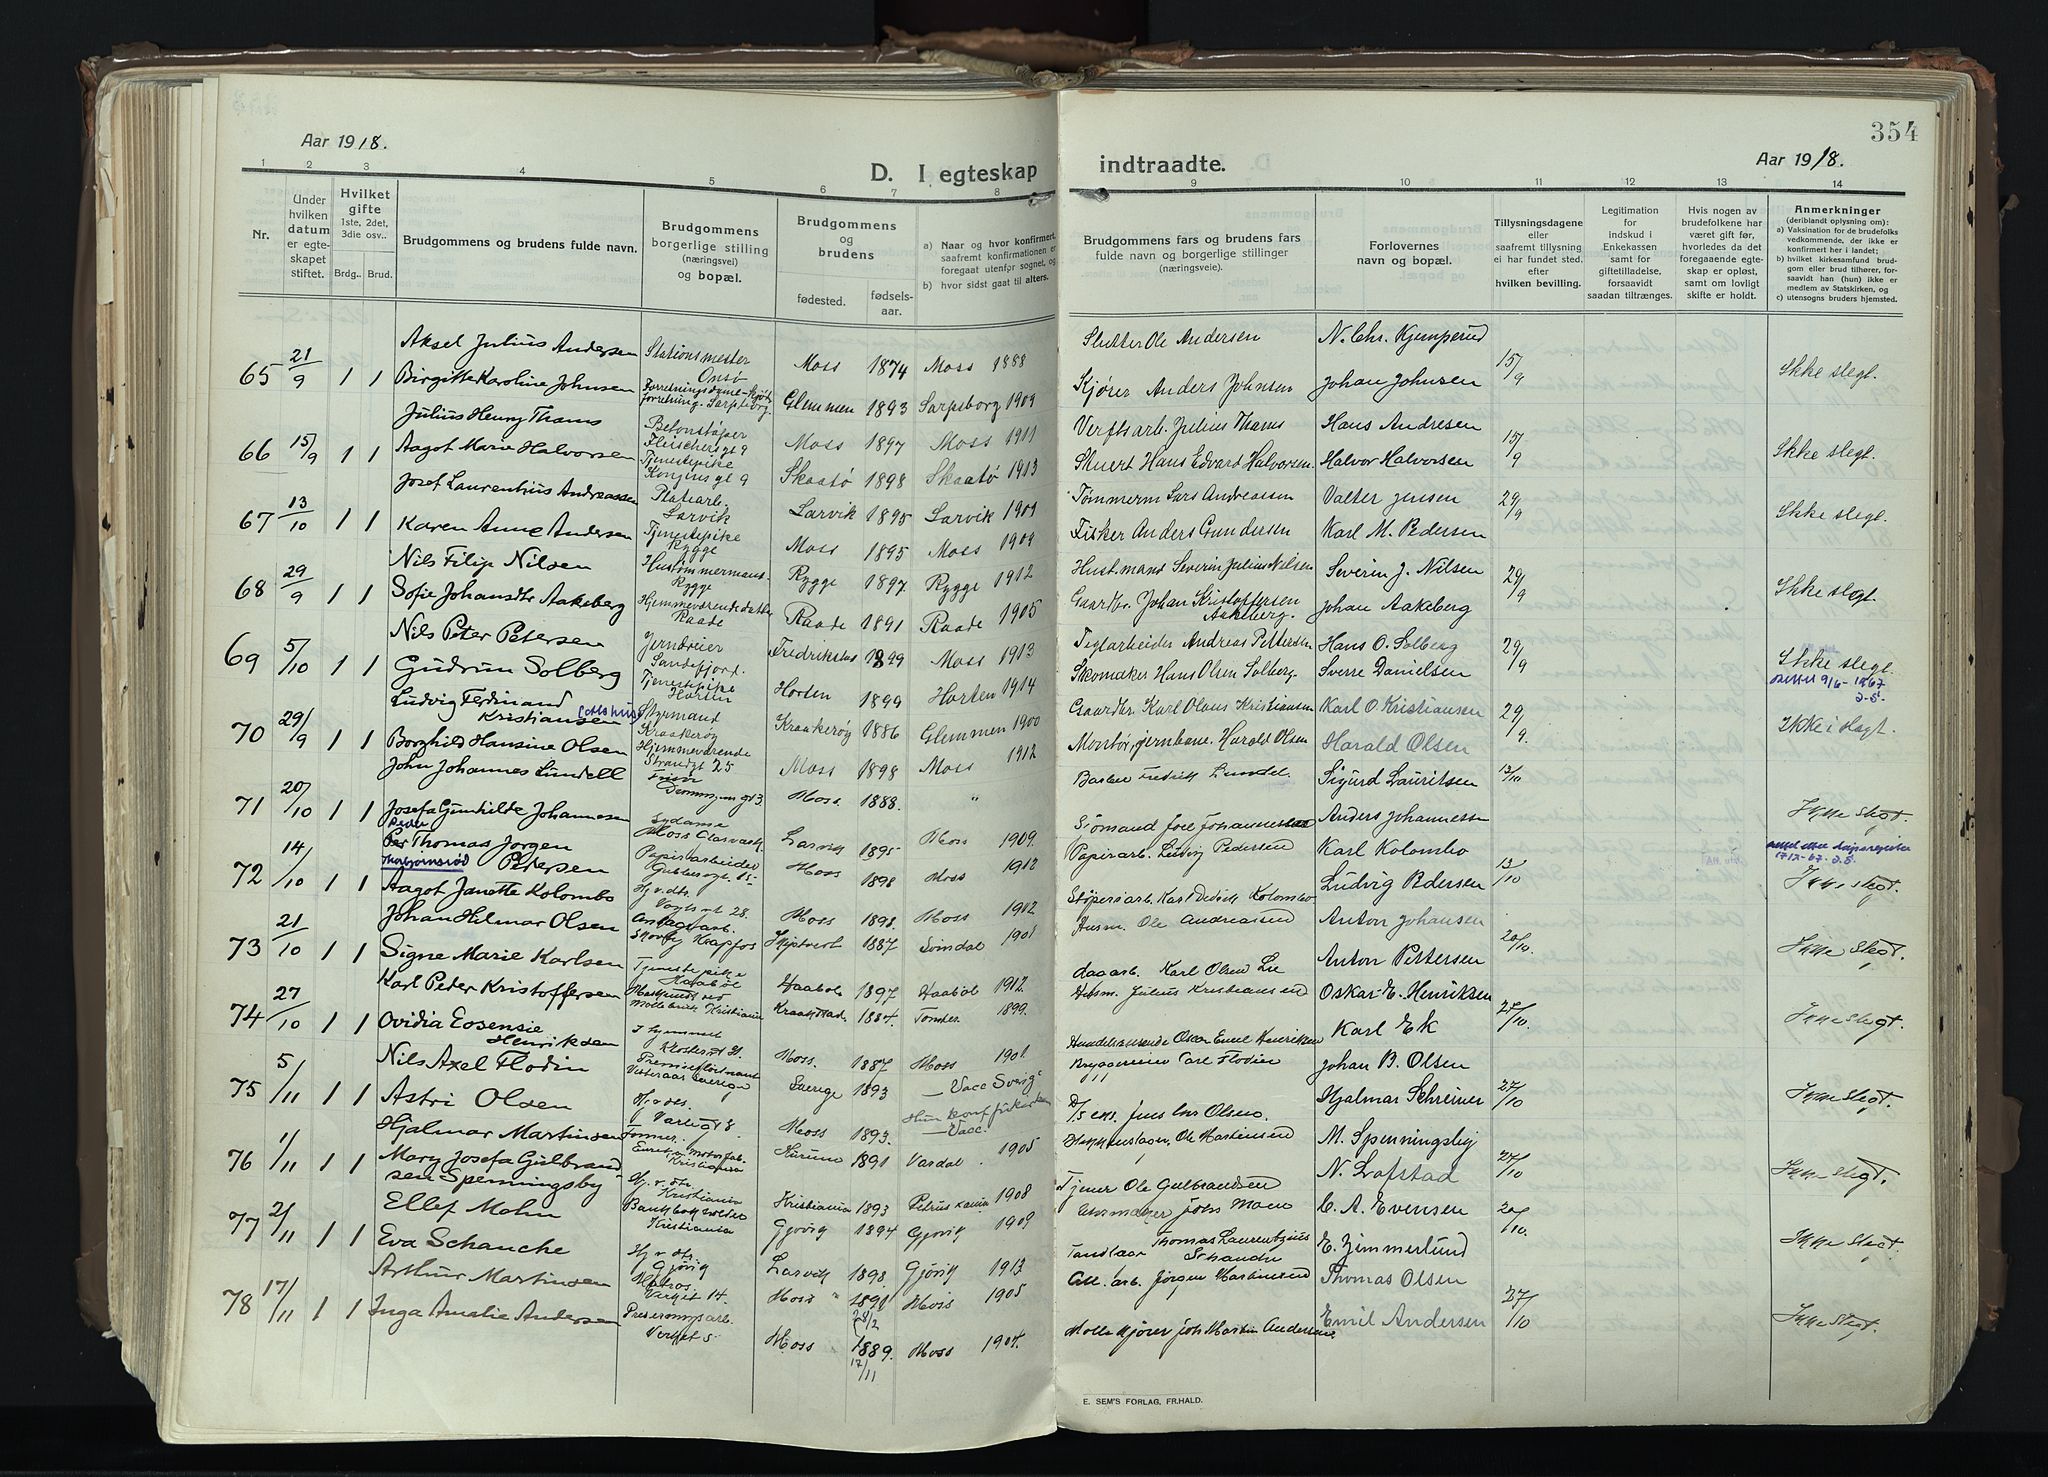 354
Aar 1918.
D. I egteskap indtraadte.
Aar 1918.
1 2 3 4 5 6 7 8 9 10 11 12 13 14
Nr.
Under hvilken datum er egteskapet stiftet.
Hvilket gifte 1ste, 2det, 3die osv..
Brdg.. Brud.
Brudgommens og brudens fulde navn.
Brudgommens borgerlige stilling (næringsvei) og bopæl.
Brudgommens og brudens
fødested.
fødselsaar.
a) Naar og hvor konfirmert, saafremt konfirmationen er foregaat utenfor sognet, og
b) hvor sidst gaat til alters.
Brudgommens fars og brudens fars fulde navn og borgerlige stillinger (næringsveie).
Forlovernes navn og bopæl.
Tillysningsdagene eller saafremt tillysning ei har fundet sted, efter hvilken bevilling.
Legitimation for indskud i Enkekassen samt for giftetilladelse, forsaavidt saadan tiltrænges.
Hvis nogen av brudefolkene har været gift før, hvorledes da det foregaaende egteskap er opløst, samt om lovligt skifte er holdt.
Anmerkninger (deriblandt oplysning om):
a) Vaksination for de brudefolks vedkommende, der ikke er konfirmert her i landet;
b) hvilket kirkesamfund brudgom eller brud tilhører, forsaavidt han (hun) ikke er medlem av Statskirken, og
c) utensogns bruders hjemsted.
Aksel Julius Andersen Stationsmester Onsø Moss 1874 Moss 1888 Slutter Ole Andersen N. Chr. Kjemperud
65 21/9 1 1 Birgitte Karoline Johnsen Sarpsborg Glemmen 1893 Sarpsborg 1909 Kjører Anders Johnsen Johan Johnsen 15/9 Ikke slegt.
Julius Henry Thams Betonstøper Fleischersgt 9 Moss 1897 Moss 1911 Verftsarb. Julius Thams Hans Andresen
66 15/9 1 1 Aagot Marie Halvorsen Tjenestepike Kongensgt 9 Skaatø 1898 Skaatø 1913 Stuert Hans Edvard Halvorsen Halvor Halvorsen 15/9 Ikke slegt.
Josef Laurentius Andreassen Platearb. Larvik Larvik 1895 Larvik 1909 Tømmerm Lars Andreassen Valter Jensen
67 13/10 1 1 Karen Anne Andersen Tjenestepike Rygge Moss 1895 Moss 1909 Fisker Anders Gundersen Karl M. Pedersen 29/9 Ikke slegt.
Nils Filip Nilsen Hustømmermand Rygge Rygge 1897 Rygge 1912 Hustmand Severin Julius Nilsen Severin J. Nilsen
68 29/9 1 1 Sofie Johansdtr Aakeberg Hjemmeværende datter Raade Raade 1891 Raade 1905 Gaardbr. Johan Kristoffersen Aakeberg. Johan Aakeberg 29/9 Ikke slegt.
Nils Peter Petersen Jerndreier Sandefjord. Fredrikstad 1899 Moss 1913 Teglarbeider Andreas Pettersen Hans O. Solberg
69 5/10 1 1 Gudrun Solberg Tjenestepike Horten Horten 1899 Horten 1914 Skomaker Hans Olsen Solberg. Sverre Danielsen 29/9 Ikke slegt.
Ludvig Ferdinand Kristiansen Styrmand Kraakerøy Kraakerøy 1886 Glemmen 1900 Gaardbr Karl Olaus Kristiansen Karl O. Kristiansen
70 29/9 1 1 Borghild Hansine Olsen Hjemmeværende Strandgt 25 Moss 1898 Moss 1912 Montør, jernbane. Harald Olsen Harald Olsen 29/9. Ikke i slegt.
John Johannes Lundell Frisør Moss. 1888. " Barber Fredrik Lundel. Sigurd Lauritsen 13/10
71 20/10 1 1 Josefa Gunhilde Johannesen Sydame Larvik 1895 Moss 1909. Sjömand Joel Johannessen Anders Johannessen Ikke slegt.
Peder
Per Thomas Jørgen Petersen Papirarbeider Moss 1898 Moss 1912 Papirarb. Ludvig Pedersen Karl Kolombo
Thorbjørnsrød
72 14/10 1 1 Aagot Janette Kolombo Hj.v.dtr. Vogtsgt 28. Moss 1898 Moss 1912 Støperiarb. Karl Didrik Kolombo Ludvig Pedersen 13/10 Ikke slegt.
Johan Hilmar Olsen Krapfos 1887 1901 Husm. Ole Andreassen Anton Johansen
73 21/10 1 1 Signe Marie Karlsen Tjenestepike Haabøl Haabøl 1897 Haabøl 1912 dagarb. Karl Olsen Lie Anton Pettersen 20/10 Ikke slegt.
Karl Peder Kristoffersen Kristiania 1884. 1899. Husm. Julius Kristiansen Oskar E. Henriksen
74 27/10 1 1 Ovidia Eosensie Henriksen Moss. 1887 Moss 1901. Handelsreisende Oscar Emil Henriksen Karl Ek 27/10. Ikke slegt.
Nils Axel Flodin Premierløitnant Vesteraas Sverige Sverige 1893 Vacc Sverige Carl Flodin Johan B. Olsen
75 5/11 1 1 Astri Olsen Hj.v.dtr. Moss 1893. Vacc. Olsen. Hjalmar Schreiner 27/10 Ikke slegt.
Hjalmar Martinsen Kristiania 1891 Vardal 1905 Ole Martinsen M. Spenningsby
76 1/11 1 1 Mary Josefa Gulbrandsen Spenningsby Hj.v.dtr. Kristiania Kristiania 1893 1908 Tjener Ole Gulbrandsen N. Lofstad 27/10 Ikke slegt.
Ellef Mohn Bankbokholder Kristiania Gjøvig 1894 Gjøvig 1909 C. A. Evensen
77 2/11 1 1 Eva Schanche Hj.v.dtr. Gjøvig Larvik 1898 Gjøvig 1913 Tandlæge Thomas Laurentzius Schanche E. Zimmerlund 20/10. Ikke slegt.
Arthur Martinsen Matros. Værket 14. Moss 1891 28/2 Moss 1905 Jørgen Martinsen Thomas Olsen
78 17/11 1 1 Inga Amalie Andersen Værket 5 Moss 1889. 17/11 Moss 1904. Møllekjører Joh Martin Andersen Emil Andersen 27/10 Ikke slegt.
E. SEM'S FORLAG, FR.HALD.